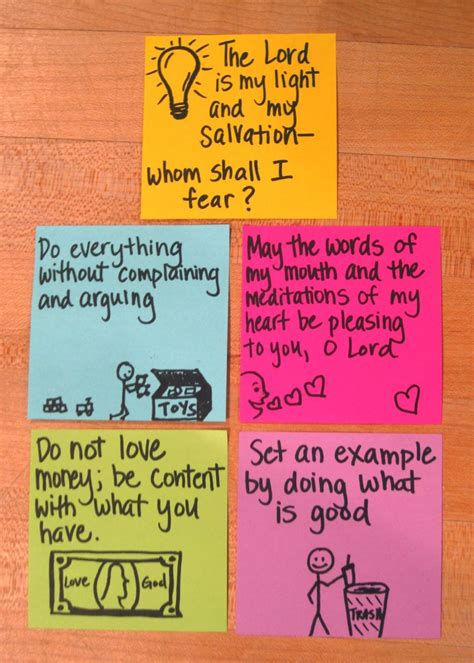 The Lord
is my light
and my
salvation—
whom shall I
fear?
Do everything
without complaining
and arguing
TOYS
May the words of
my mouth and the
meditations of my
heart be pleasing
to you, O Lord
Do not love
money; be content
with what you
have.
Love God
Set an example
by doing what
is good
TRASH